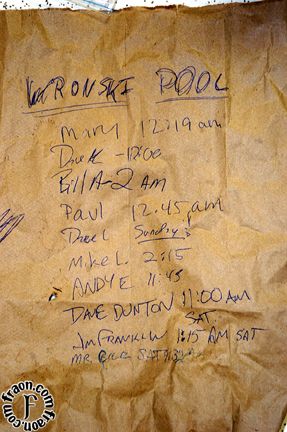 WRONSKI POOL
Mary 12:19 am
-12:00
Bill A-2 AM
Paul 12.45 am
Sunday
Mike L. 2:15
ANDY E 11:45
DAVE DUNTON 11:00 AM
SAT.
Jim FRANKLIN 1:15 AM SAT
MR. SAT
fraon.com